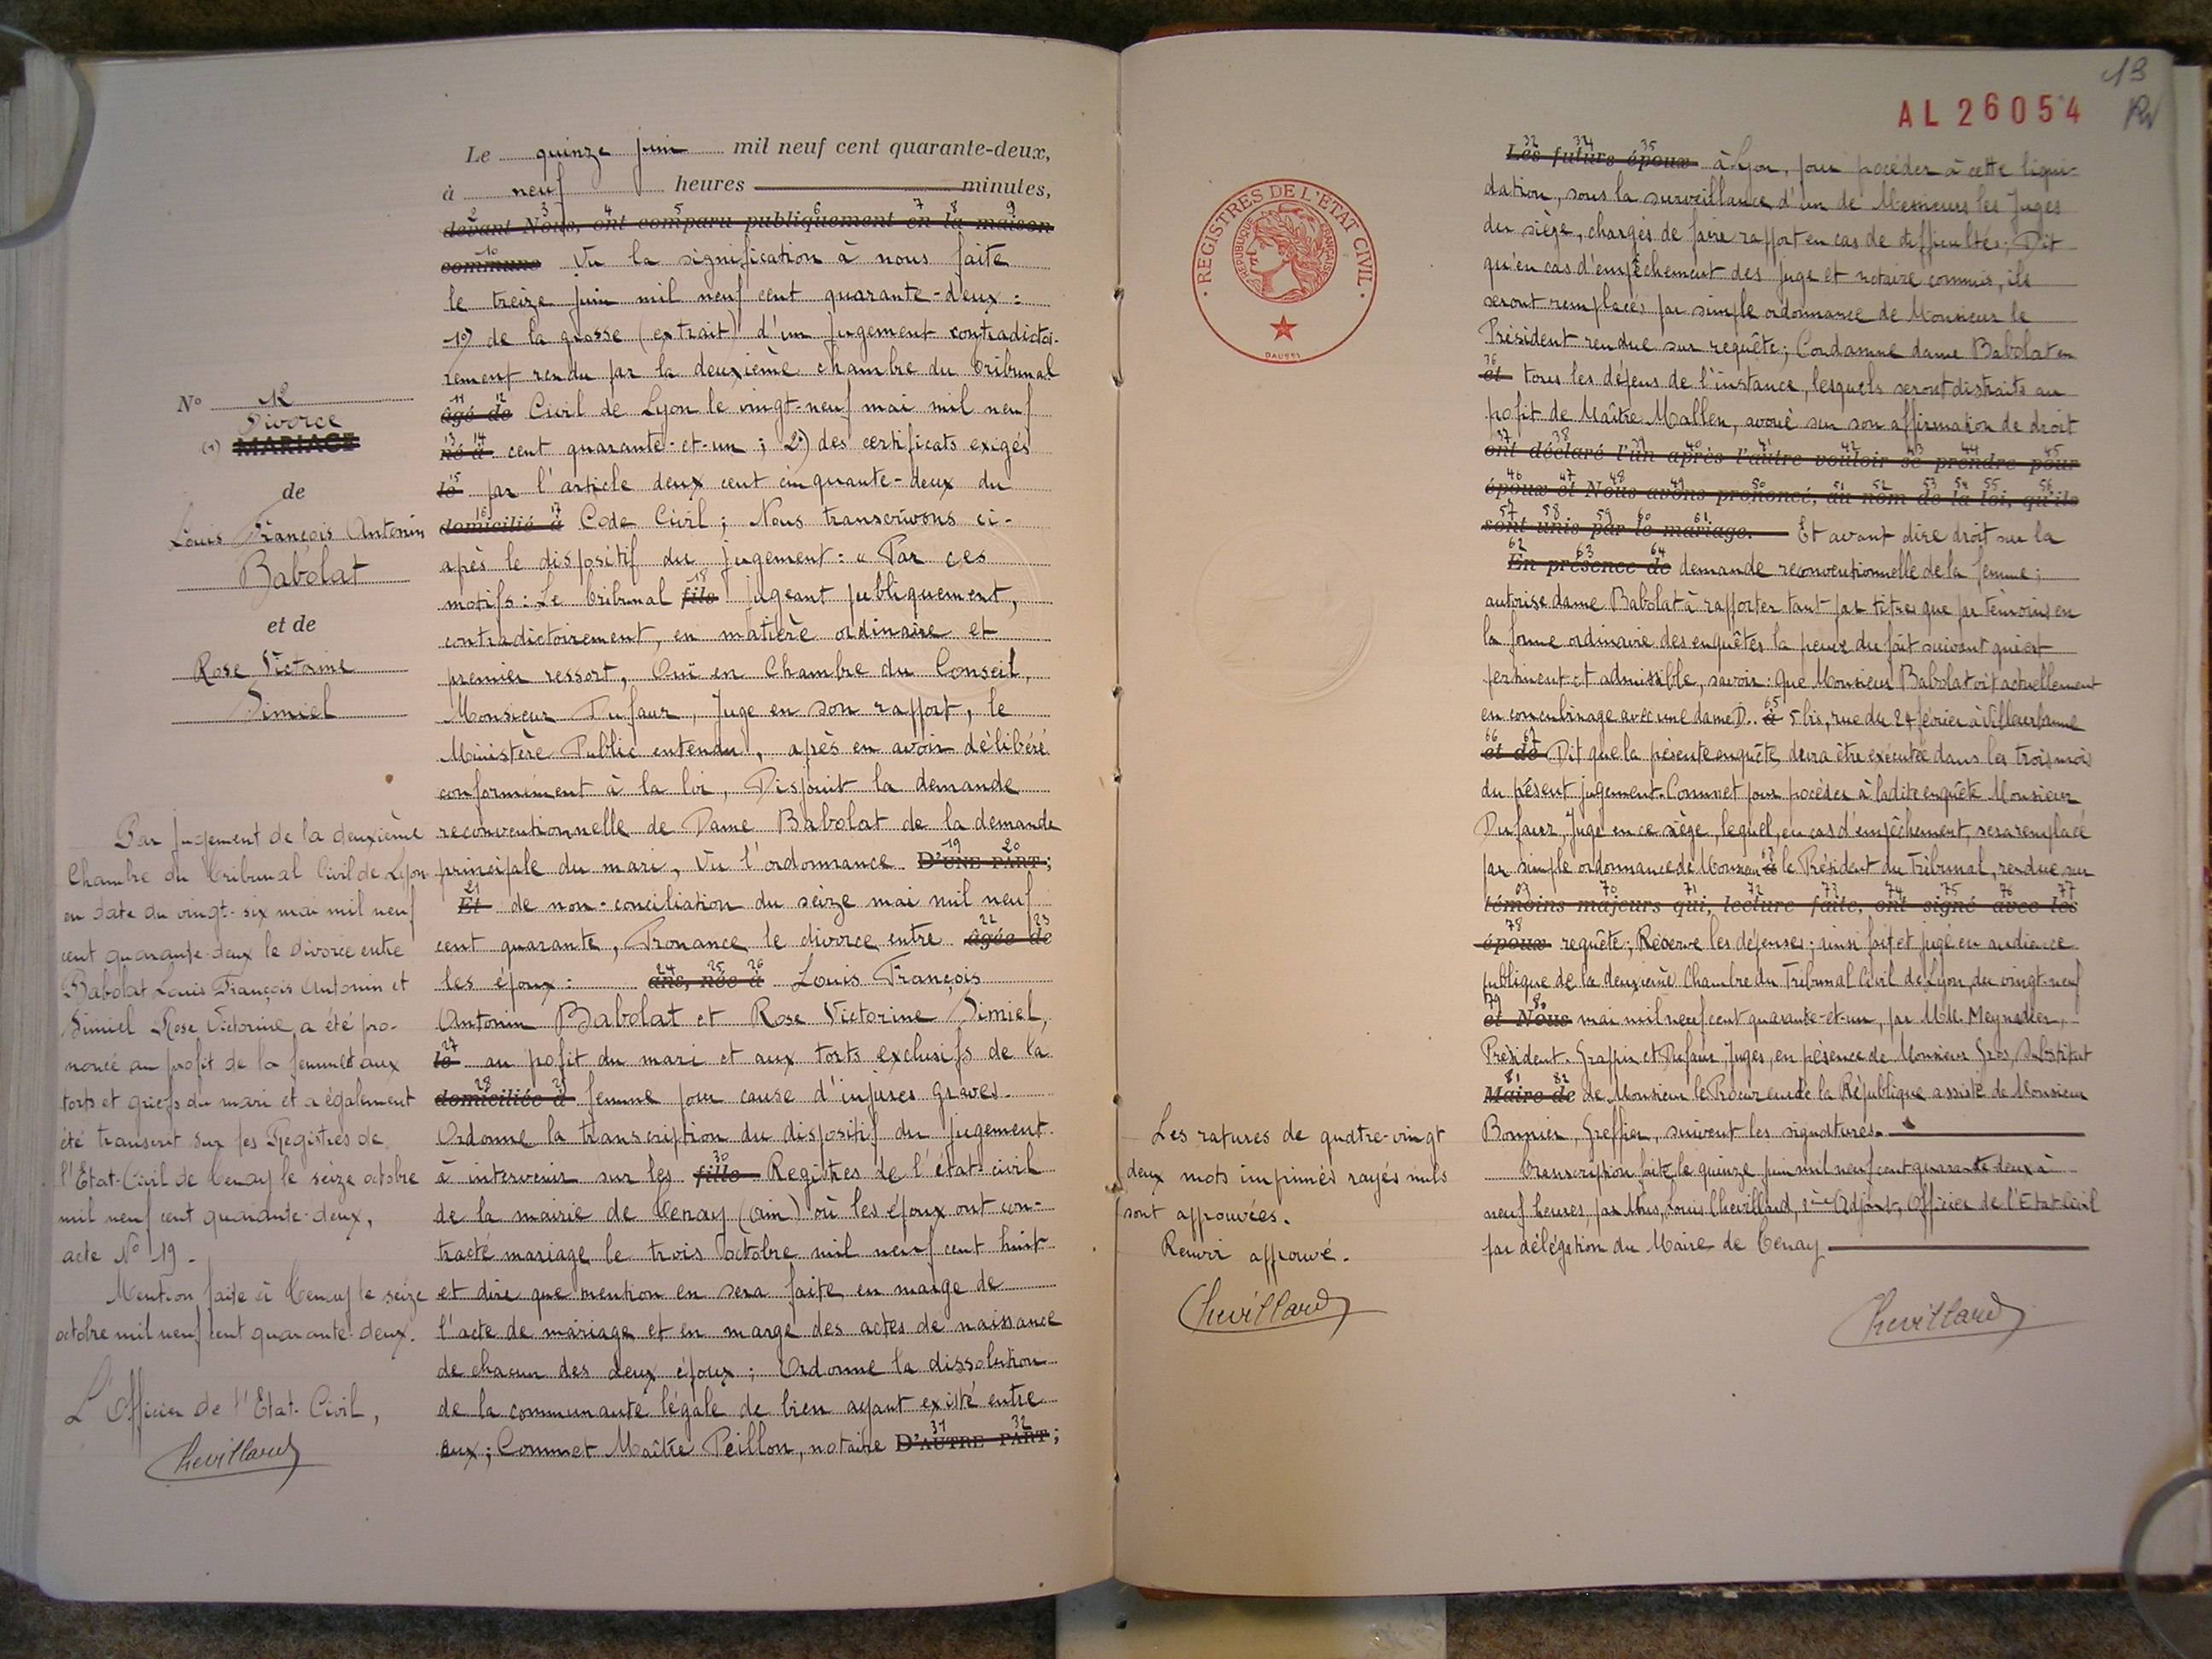 Le quinze juin mil neuf cent quarante-deux,
à neuf heures minutes,
devant Nous, ont comparu publiquement en la maison
commune Vu la signification à nous faite
le treize juin mil neuf cent quarante-deux :
1°) de la grosse (extrait) d'un jugement contradictoi-
rement rendu par la deuxième chambre du Tribunal
âgé de Civil de Lyon le vingt-neuf mai mil neuf
né à cent quarante-et-un ; 2°) des certificats exigés
le par l'article deux cent cinquante-deux du
domicilié à Code Civil ; Nous transcrivons ci-
après le dispositif du jugement : « Par ces
motifs : Le Tribunal fils jugeant publiquement,
contradictoirement, en matière ordinaire et
premier ressort, Ouï en Chambre du Conseil,
Monsieur Dufaur, Juge en son rapport, le
Ministère Public entendu, après en avoir délibéré
conformément à la loi, Disjoint la demande
reconventionnelle de Dame Babolat de la demande
principale du mari, Vu l'ordonnance D'UNE PART ;
Et de non-conciliation du seize mai mil neuf
cent quarante, Prononce le divorce entre âgée de
les époux : ans, née à Louis François
Antonin Babolat et Rose Victorine Simiel,
le au profit du mari et aux torts exclusifs de la
domiciliée à femme pour cause d'injures graves.
Ordonne la transcription du dispositif du jugement
à intervenir sur les fille Registres de l'état-civil
de la mairie de Tenay (Ain) où les époux ont con-
tracté mariage le trois octobre mil neuf cent huit
et dire que mention en sera faite en marge de
l'acte de mariage et en marge des actes de naissance
de chacun des deux époux ; Ordonne la dissolution
de la communauté légale de bien ayant existé entre
eux ; Commet Maître Peillon, notaire D'AUTRE PART ;
N° 12
Divorce
(1) MARIAGE
de
Louis François Antonin
Babolat
et de
Rose Victorine
Simiel
Par jugement de la deuxième
Chambre du Tribunal Civil de Lyon
en date du vingt-six mai mil neuf
cent quarante-deux le divorce entre
Babolat Louis François Antonin et
Simiel Rose Victorine, a été pro-
noncé au profit de la femme et aux
torts et griefs du mari et a également
été transcrit sur les Registres de
l'Etat-Civil de Tenay le seize octobre
mil neuf cent quarante-deux,
acte N° 19.
Mention faite à Tenay le seize
octobre mil neuf cent quarante-deux.
L'Officier de l'Etat-Civil,
Chevillard
13
AL 26054
REGISTRES DE L'ÉTAT CIVIL
REPUBLIQUE FRANÇAISE
DAUSSY
Les futurs époux à Lyon, pour procéder à cette liqui-
dation, sous la surveillance d'un de Messieurs les Juges
du siège, chargés de faire rapport en cas de difficultés ; Dit
qu'en cas d'empêchement des juge et notaire commis, ils
seront remplacés par simple ordonnance de Monsieur le
Président rendue sur requête ; Condamne dame Babolat en
et tous les dépens de l'instance, lesquels seront distraits au
profit de Maître Mallen, avoué sur son affirmation de droit
ont déclaré l'un après l'autre vouloir se prendre pour
époux et Nous avons prononcé, au nom de la loi, qu'ils
sont unis par le mariage. Et avant dire droit sur la
En présence de demande reconventionnelle de la femme ;
autorise dame Babolat à rapporter tant par titres que par témoins en
la forme ordinaire des enquêtes la preuve du fait suivant qui est
pertinent et admissible, savoir : que Monsieur Babolat vit actuellement
en concubinage avec une dame D.. à 5 bis, rue du 24 février à Villeurbanne
et de Dit que la présente enquête devra être exécutée dans les trois mois
du présent jugement. Commet pour procéder à ladite enquête Monsieur
Dufaur, Juge en ce siège, lequel, en cas d'empêchement, sera remplacé
par simple ordonnance de Monsieur le Président du Tribunal, rendue sur
témoins majeurs qui, lecture faite, ont signé avec les
époux requête ; Réserve les dépenses ; ainsi fait et jugé en audience
publique de la deuxième Chambre du Tribunal Civil de Lyon, du vingt-neuf
et Nous mai mil neuf cent quarante-et-un, par MM. Meynadier,
Président. Grappin et Dufaur, Juges, en présence de Monsieur Gros, Substitut
Maire de de Monsieur le Procureur de la République assisté de Monsieur
Bonnier, Greffier, suivent les signatures.
Transcription faite le quinze juin mil neuf cent quarante-deux à
neuf heures, par Nous, Louis Chevillard, Adjoint, Officier de l'Etat-Civil
par délégation du Maire de Tenay
Chevillard
Les ratures de quatre-vingt
deux mots imprimés rayés nuls
sont approuvées.
Renvoi approuvé.
Chevillard